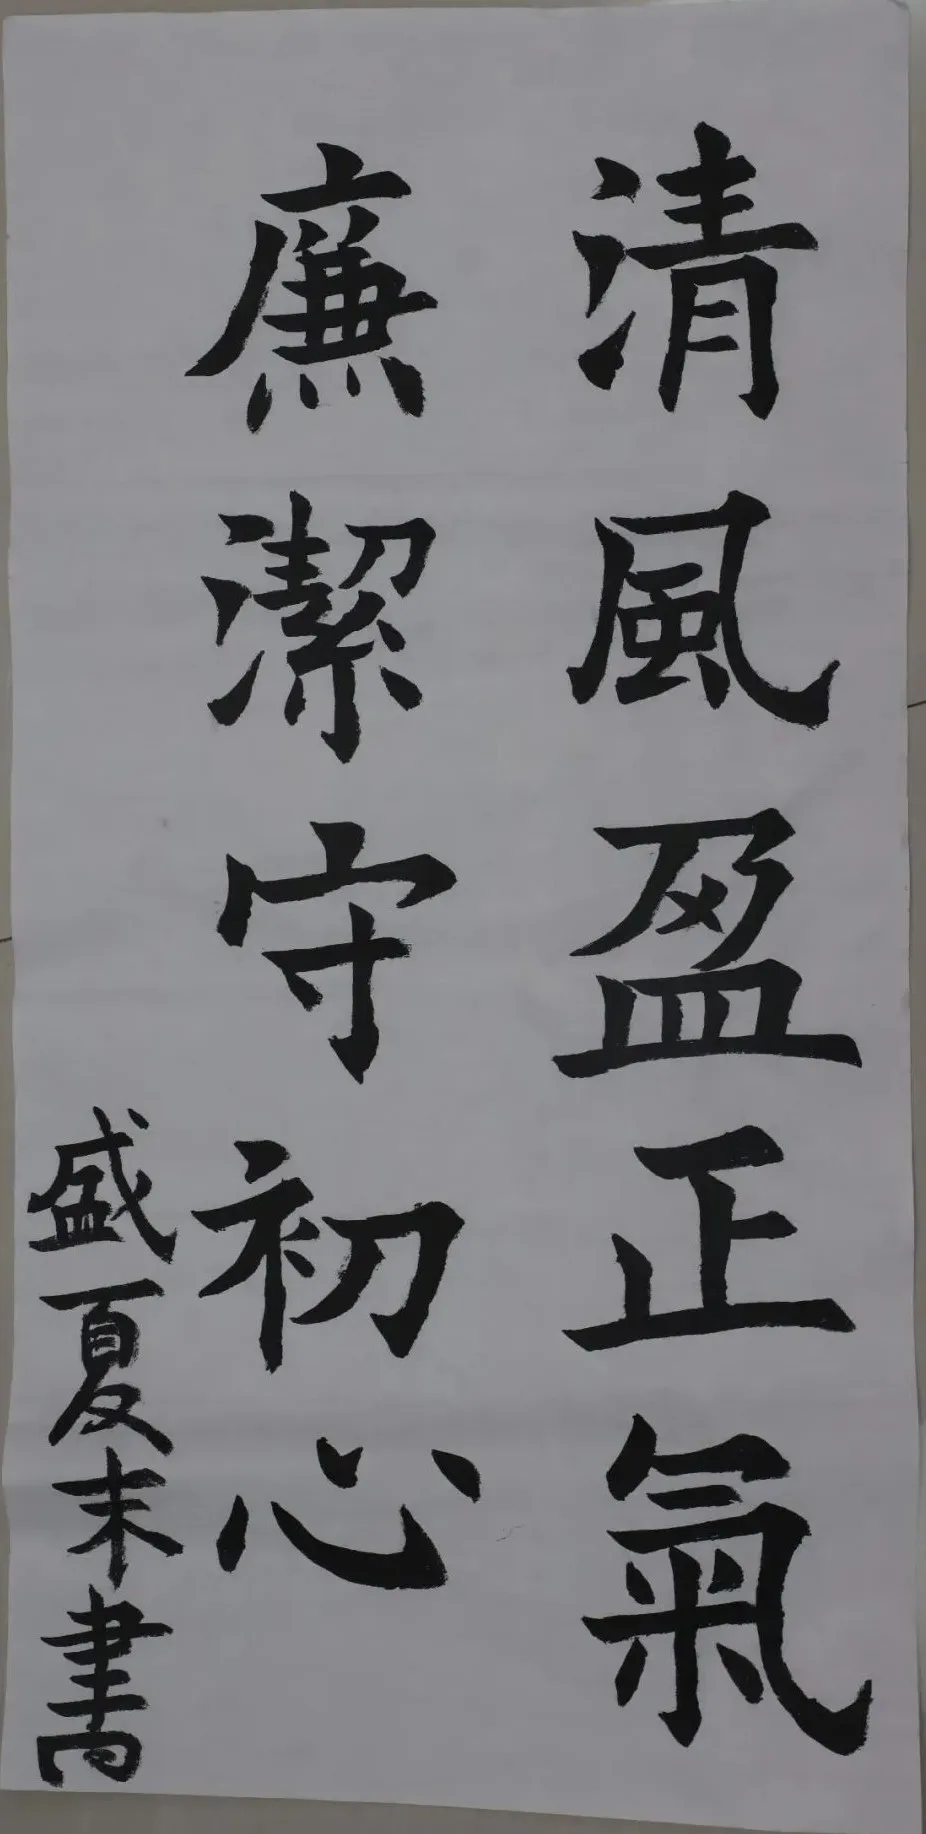 清風盈正氣
廉潔守初心
盛夏末書